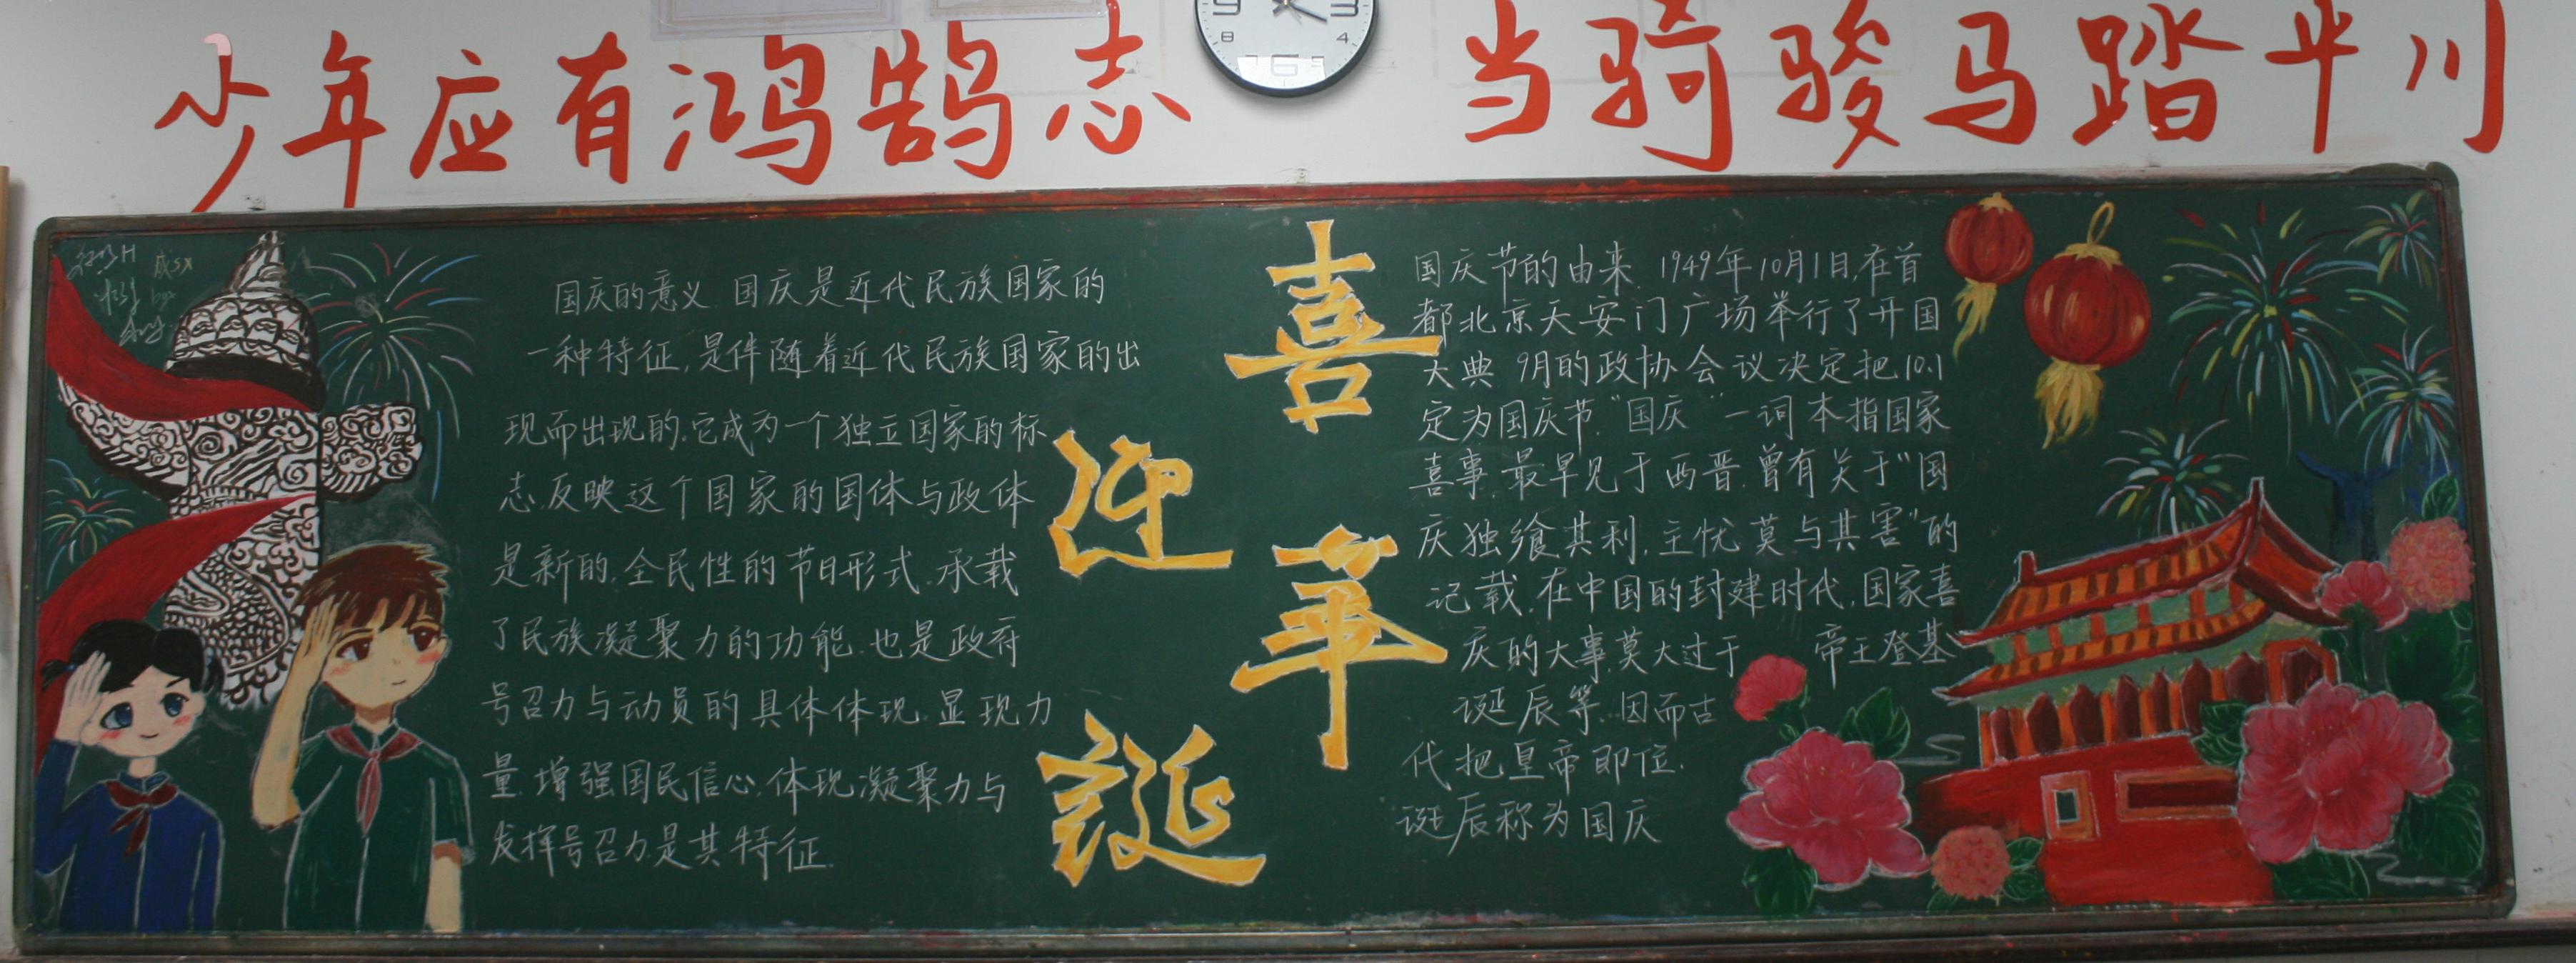 少年应有鸿鹄志 当骑骏马踏平川
9 3
8 4
7 6 5
国庆的意义 国庆是近代民族国家的
一种特征,是伴随着近代民族国家的出
现而出现的.它成为一个独立国家的标
志.反映这个国家的国体与政体
是新的.全民性的节日形式.承载
了民族凝聚力的功能.也是政府
号召力与动员的具体体现.显现力
量.增强国民信心.体现凝聚力与
发挥号召力是其特征.
喜
迎
华
誕
国庆节的由来. 1949年10月1日.在首
都北京天安门广场举行了开国
大典 9月的政协会议决定把10.1
定为国庆节."国庆"一词本指国家
喜事.最早见于西晋.曾有关于"国
庆独飨其利,主忧莫与其害"的
记载.在中国的封建时代,国家喜
庆的大事,莫大过于 帝王登基
诞辰等.因而古
代把皇帝即位.
诞辰称为国庆